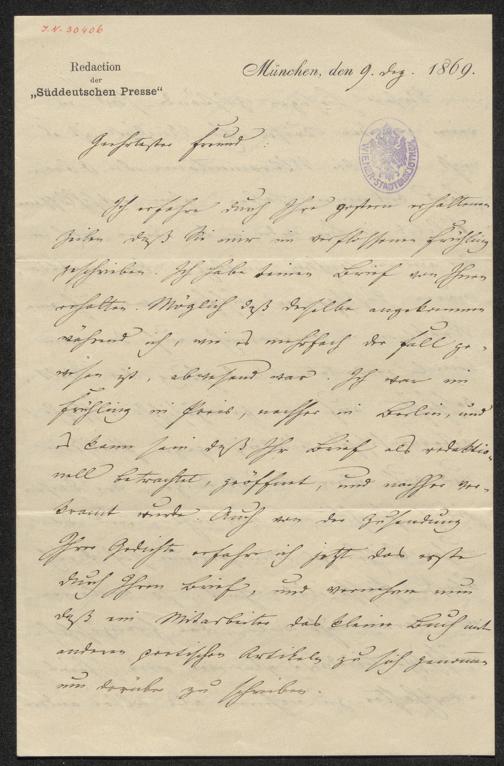 J.N. 30406
Redaction
der
„Süddeutschen Presse“
München, den 9. Dez. 1869.
WIENER STADTBIBLIOTHEK
Geehrtester Freund:
Ich erfahre durch Ihre gestern erhaltenen
Zeilen daß Sie mir im verflossenen Frühling
geschrieben. Ich habe keinen Brief von Ihnen
erhalten. Möglich daß derselbe angekommen
während ich, wie es mehrfach der Fall ge-
wesen ist, abwesend war. Ich war im
Frühling in Paris, nachher in Berlin, und
es kann sein daß Ihr Brief als redaktio-
nell betrachtet, geöffnet, und nachher ver-
kramt wurde. Auch von der Zusendung
Ihrer Gedichte erfahre ich jetzt das erste
durch Ihren Brief, und vernehme nun
daß ein Mitarbeiter das kleine Buch mit
anderen poetischen Artikeln zu sich genommen
um darüber zu schreiben.